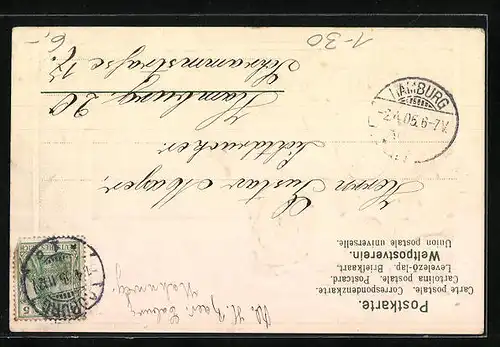 Postkarte.
Carte postale. Correspondenzkarte.
Cartolina postale. Postcard.
Levelező-lap. Briefkaart.
Weltpostverein.
Union postale universelle.
Herrn Gustav Mayer,
Lichtdrucker
Hamburg, 20
Schrammstraße 17.
HAMBURG
-2.4.05.6-7V.
1-30
6,-
5